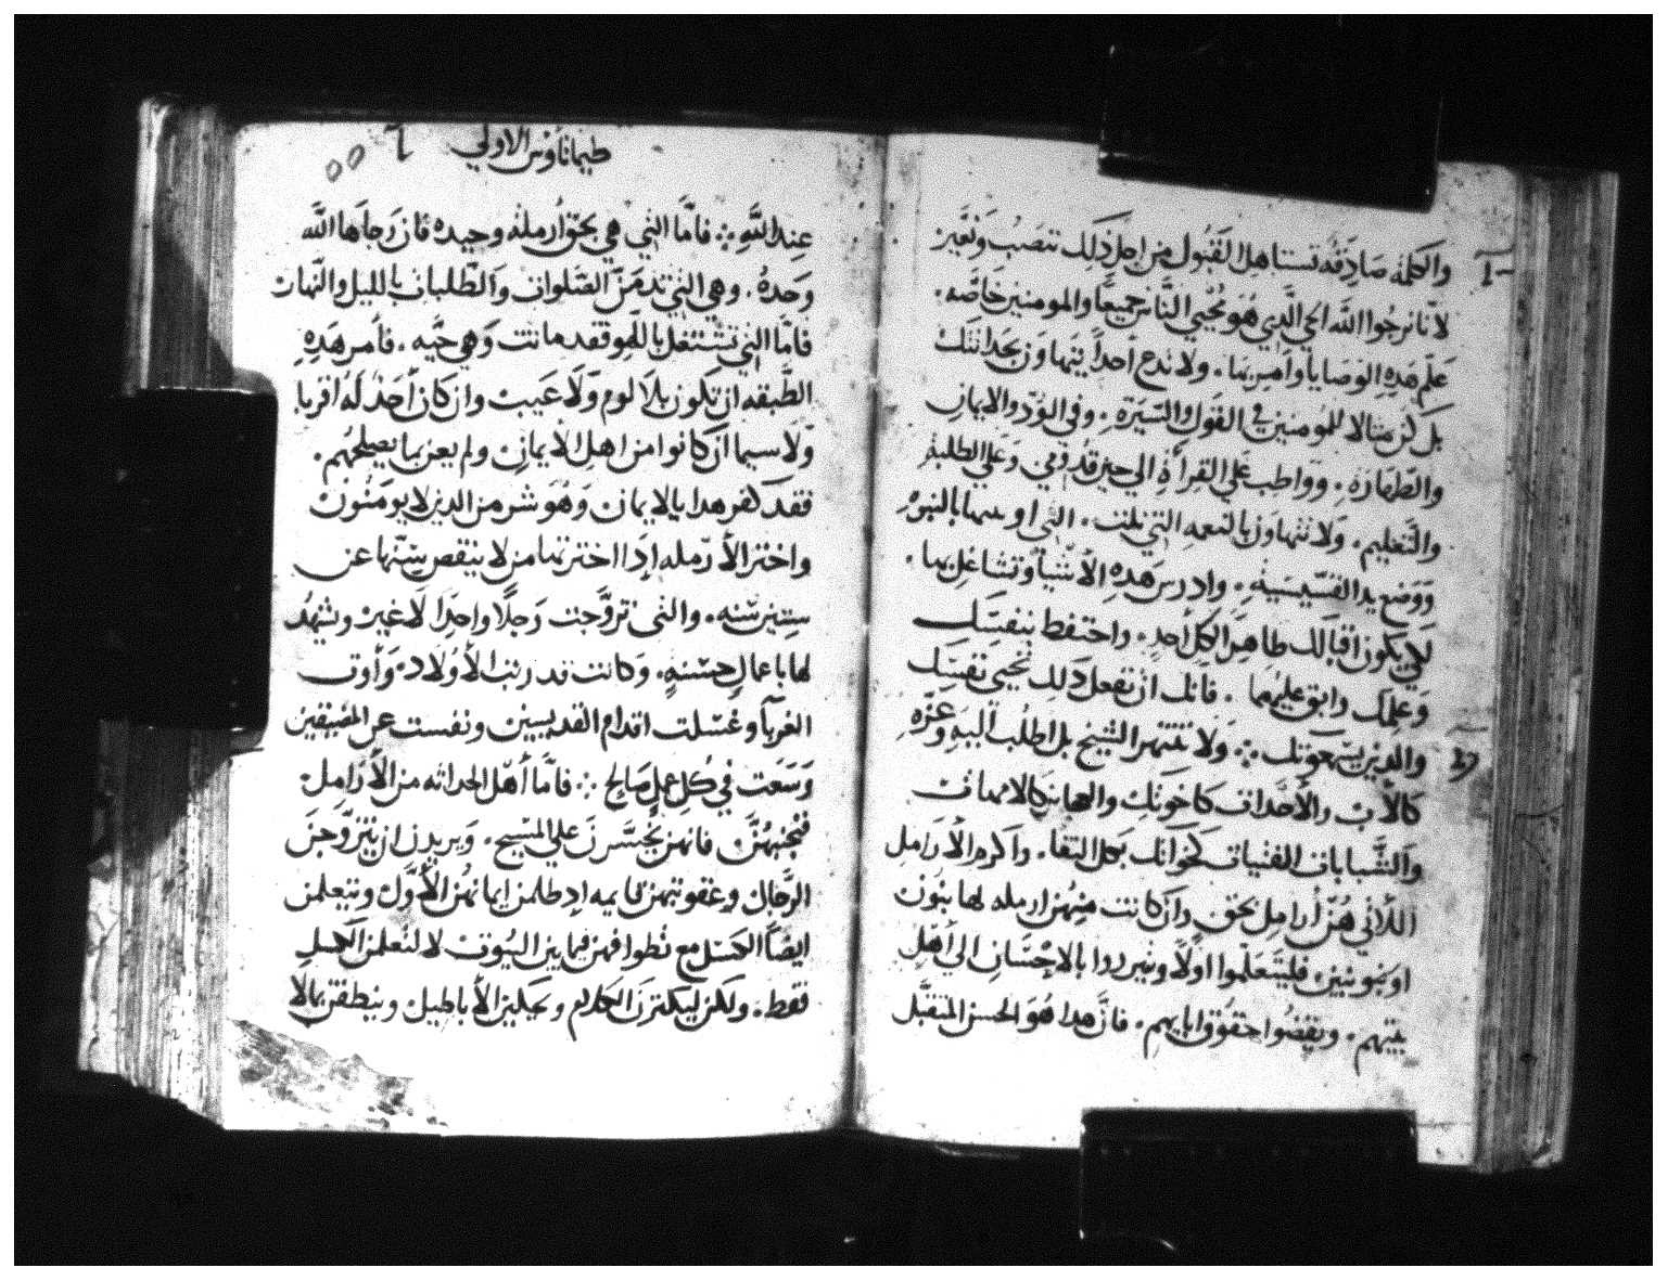 والكلمة صادقه تستاهل القبول من اجل ذلك نتصب ونعير
لاننا نرجوا الله الحي الذي هو محيي الناس جميعا والمومنين خاصه.
علم هذه الوصايا وامر بها. ولا تدع احدا يتهاون بحداثتك
بل كن مثالا للمومنين في القول والسيرة. وفي الود والايمان
والطهارة. وواظب على القرأة الي حين قدومي وعلى الطلبة
والتعليم. ولا تتهاون بالنعمه التي نلت. التي اوتيتها بالنبوة
ووضع يد القسيسية. وادرس هذه الأشيأ وتشاغل بها.
لكي يكون اقبالك ظاهرا لكل أحد. واحتفظ بنفسك
وعلمك وابق عليهما. فانك ان تفعل ذلك تحيي نفسك
والذين يسمعونك ۞ ولا تنتهر الشيخ بل اطلب اليه وعزه
كالأب والأحداث كاخوتك والعجايز كالامهات
والشبابات الفتيات كخواتك بكل التقا. واكرم الأرامل
اللاتي هن أرامل بحق. وان كانت منهن ارمله لها بنون
او بنو بنين. فليتعلموا اولا ويبرروا بالاحسان الي أهل
بيتهم. ويقضوا حقوق ابايهم. فان هذا هو الحسن المتقبل
طيماتاوس الاولي
٥٥
عند الله ۞ فاما التي هي بحق أرملة وحيده فان رجاها الله
وحده. وهي التي تدمن الصلوات والطلبات بالليل والنهار
فاما التي تشتغل باللهو فقد ماتت وهي حيه. فأمر هذه
الطبقه ان تكون بلا لوم ولا عيب وان كان أحد له اقربا
ولا سيما ان كانوا من اهل الأيمان ولم يعن بما يصلحهم.
فقد كفر هذا بالايمان وهو شر من الذين لا يومنون
واختر الأرمله إذا اخترتها من لا ينقص سنها عن
ستين سنه. والتي تزوجت رجلا واحدا لا غير ويشهد
لها باعمال حسنة. وكانت قد ربت الأولاد وأوت
الغربآ وغسلت اقدام القديسين ونفست عن المضيقين
وسعت في كل عمل صالح ۞ فاما أهل الحداثه من الأرامل
فتجنبهن. فانهن يجسرن علي المسيح. ويريدن ان يتزوجن
الرجال وعقوبتهن قايمه إذ ظلمن ايمانهن الأول ويتعلمن
ايضا الكسل مع تطوافهن فيما بين البيوت لا لتعلمن الكسل
فقط. ولكن ليكثرن الكلام ويحكين الأباطيل وينطقن بمالا